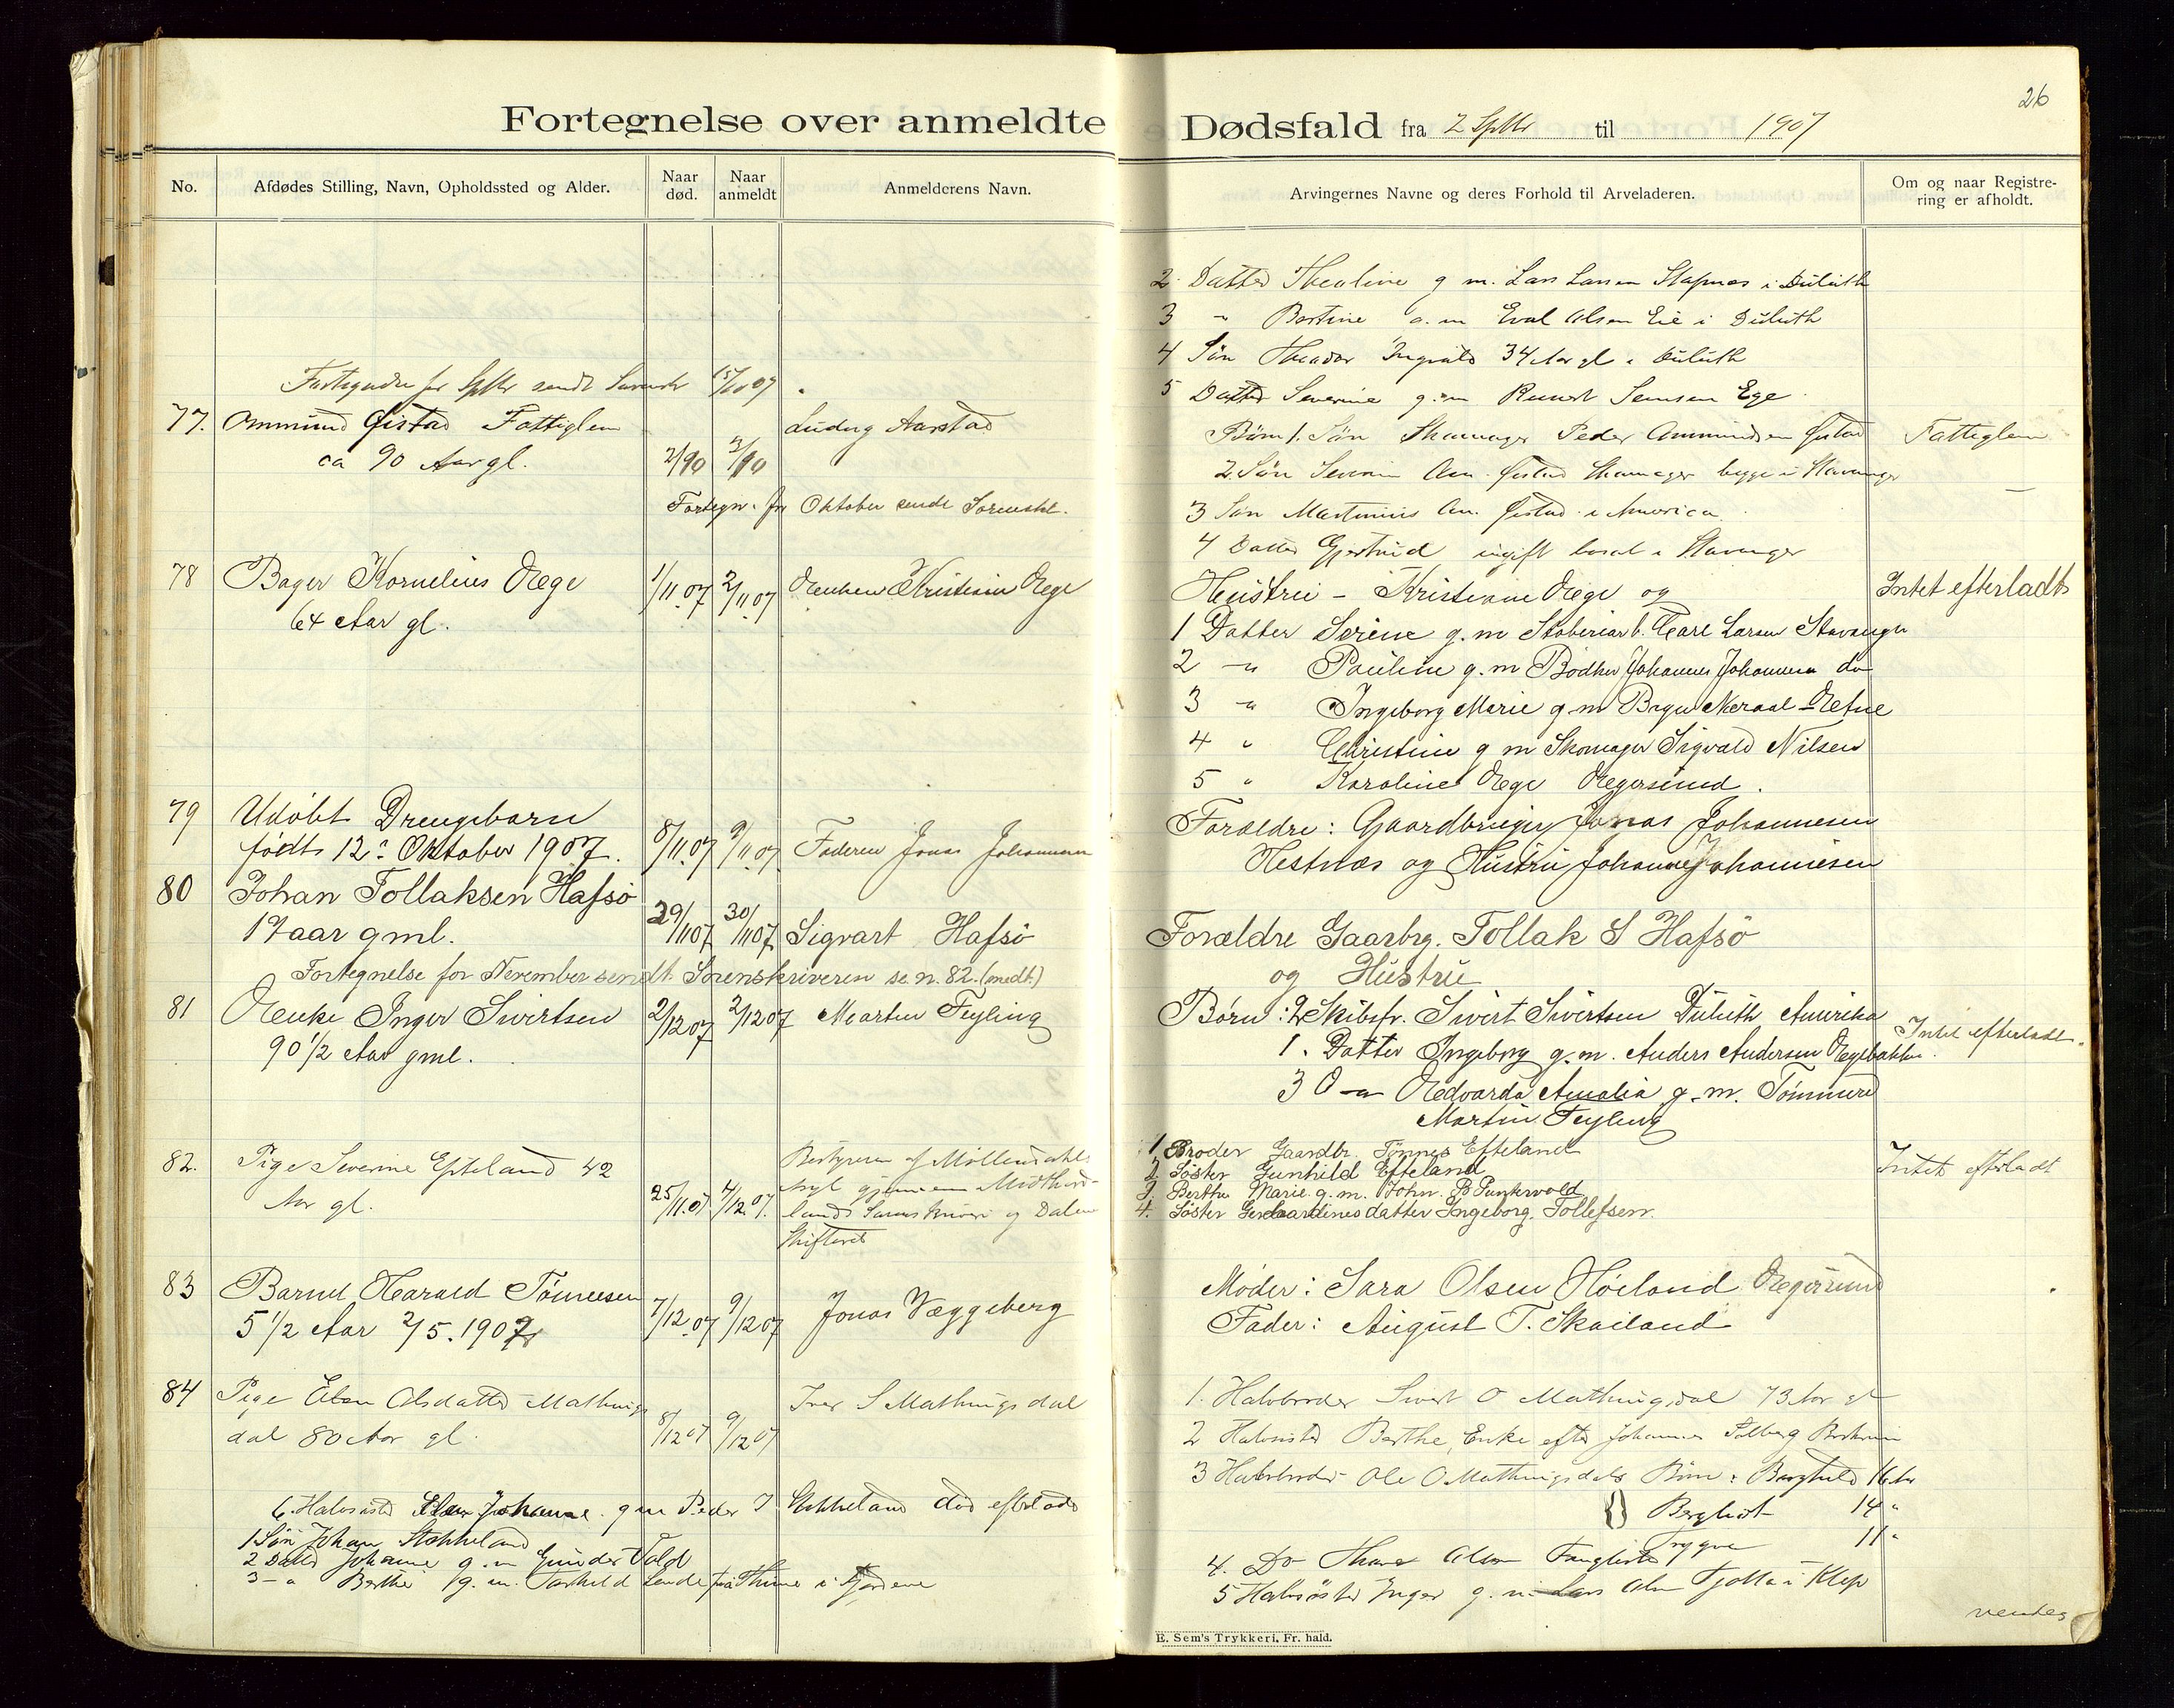 26
Fortegnelse over anmeldte Dødsfald fra 2 Spttr til 1907
No.
Afdødes Stilling, Navn, Opholdssted og Alder.
Naar død.
Naar anmeldt
Anmelderens Navn.
Arvingernes Navne og deres Forhold til Arveladeren.
Om og naar Registrering er afholdt.
2 Datter Thealine g m. Lars Larsen Stapnæs i Duluth
3 " Bertine g. m Eval Olsen Eie i Duluth
4 Søn Theodor Ingvald 34 Aar gl i Duluth
5 Datter Severine g. m Samsen Ege
Spttr sendt 07
77. Ommund Øistad Fattiglem
ca 90 Aar gl.
2/90 3/90
Ludvig Aarstad
Fortegn. for Oktober sendt Sorenskr.
Børn 1. Søn Skomager Peder Ommundsen Øistad
Fattiglem
2. Søn Severin Om. Øistad Skomager begge i Stavanger
3 Søn Martinius Om. Øistad i America
4 Datter Gjertrud ugift bosat i Stavanger
78 Bager Kornelius Æge
64 Aar gl.
1/11.07 2/11 07
Enken Kristiane Æge
Hustru - Kristiane Æge og
Intet efterladt
1 Datter Serine g. m Carl Larsen Stavanger
2 -"- Pauline g. m Bødker Johannes Johannesen do
3 -" Ingeborg Marie g m
4 " Christine g m Skomager Sigvald Nilsen
5 " Karoline Æge Ægersund.
79 Udøbt Drengebarn
født 12. Oktober 1907.
8/11.07 9/11 07
Faderen Jonas Johannesen
Forældre: Gaardbruger Jonas Johannesen
Hestnæs og Hustru Johanne Johannesen
80 Johan Tollaksen Hafsø
17 aar gml.
29/11 07 30/11 07
Sigvart Hafsø
Forældre Gaarbrg. Tollak S Hafsø
og Hustru
Fortegnelse for November sendt Sorenskriveren se n. 82. (medt.)
81 Enke Inger Sivertsen
90 1/2 Aar gml.
2/12 07 2/12 07
Martin Feyling
Børn: 2 Skibsfr. Sivert Sivertsen Duluth Amerika
Intet efterladt.
1. Datter Ingeborg g. m. Anders Andersen
3 D -" Edvarda Amalia g. m. Tømmerm
Martin Feyling
82. Pige Severine Efteland 42
Aar gl.
25/11.07 4/12.07.
Bestyreren af Møllendahls
Asyl gjennem Midthord-
lands Sorenskriveri og Dalene
Skifteret
1 Broder Gaardbr. Tønnes Efteland
2 Søster Gunhild Efteland
3. Berthe Marie g. m. John. B Puntervold
4. Søster Gerhardines datter Ingeborg Tollefsen.
Intet efterladt
83 Barnet Harald Tønnesen
5 1/2 Aar 2/5. 1902
7/12.07 9/12 07
Jonas Væggeberg
Moder: Sara Olsen Høiland Ægersund
Fader: August T. Skailand
84 Pige Elen Olsdatter Mathings
dal 80 Aar gl.
8/12 07 9/12 07
Iver S Mathingsdal
1. Halvbroder Sivert O Mathingsdal 73 Aar gl
2 Halvsøster Berthe, Enke efter Johannes
3 Halvbroder Ole O Mathingsdals Børn: Borghild 16 Aar
Bergliot 14 "
Trygve 11 "
4. Do Olsen
5 Halvsøster Inger g. m. Lars Olsen Tjotta i Klep
6. Halvsøster Johanne g m Peder T Stokkeland død efterladt
1 Søn Johan Stokkeland
2 Datter Johanne g. m Vold
3 -" Berthe g. m. Time i Fjordene
vendes
E. Sem's Trykkeri, Fr. hald.